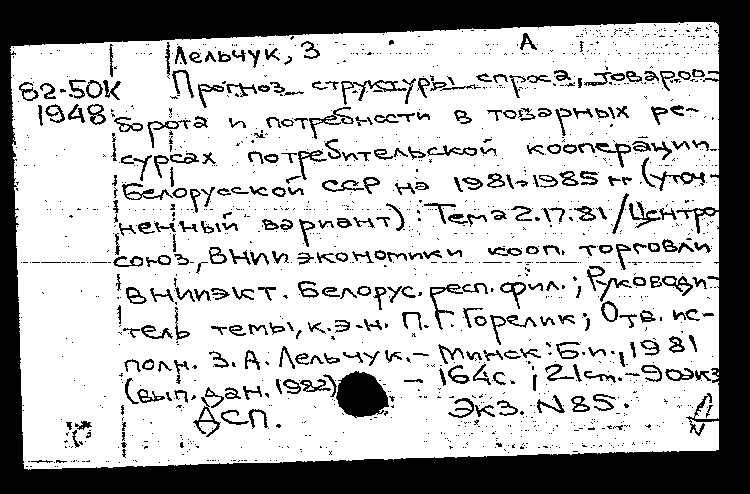 Лельчук, З А
82-50К Прогноз структуры спроса, товаров-
1948 борота и потребности в товарных ре-
сурсах потребительской кооперации
Белорусской ССР на 1981-1985 гг (уточ-
ненный вариант): Тема 2.17.81/Центро-
союз, ВНИИ экономики кооп. торговли
ВНИИЭКТ. Белорус. респ. фил.; Руководи-
тель темы, к.э.н. П.Г. Горелик; Отв. ис-
полн. З.А. Лельчук. - Минск: Б.и., 1981
(вып. дан. 1982) - 164с.; 21см. - 90экз
ДСП. Экз. N85.